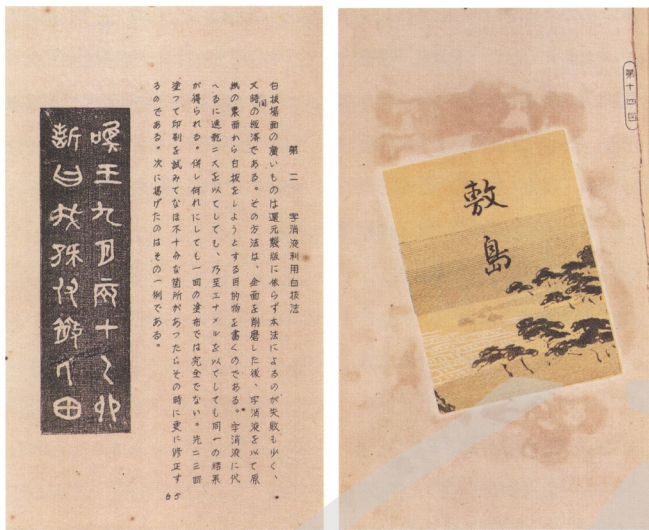 第十四回
敷島
第二 字消液利用白抜法
白抜場面の廣いものは還元製版に依らず本法によるのが失敗も少く、
又時間の經済である。その方法は、全面を削磨した後、字消液を以て原
紙の裏面から白抜をしようとする目的物を書くのである。字消液に代
へるに速乾ニスを以てしても、乃至エナメルを以てしても同一の結果
が得られる。併し何れにしても一回の塗布では完全でない。先二三回
塗つて印刷を試みてなほ不十分な箇所があつたらその時に更に修正す
るのである。次に掲げたのはその一例である。
65